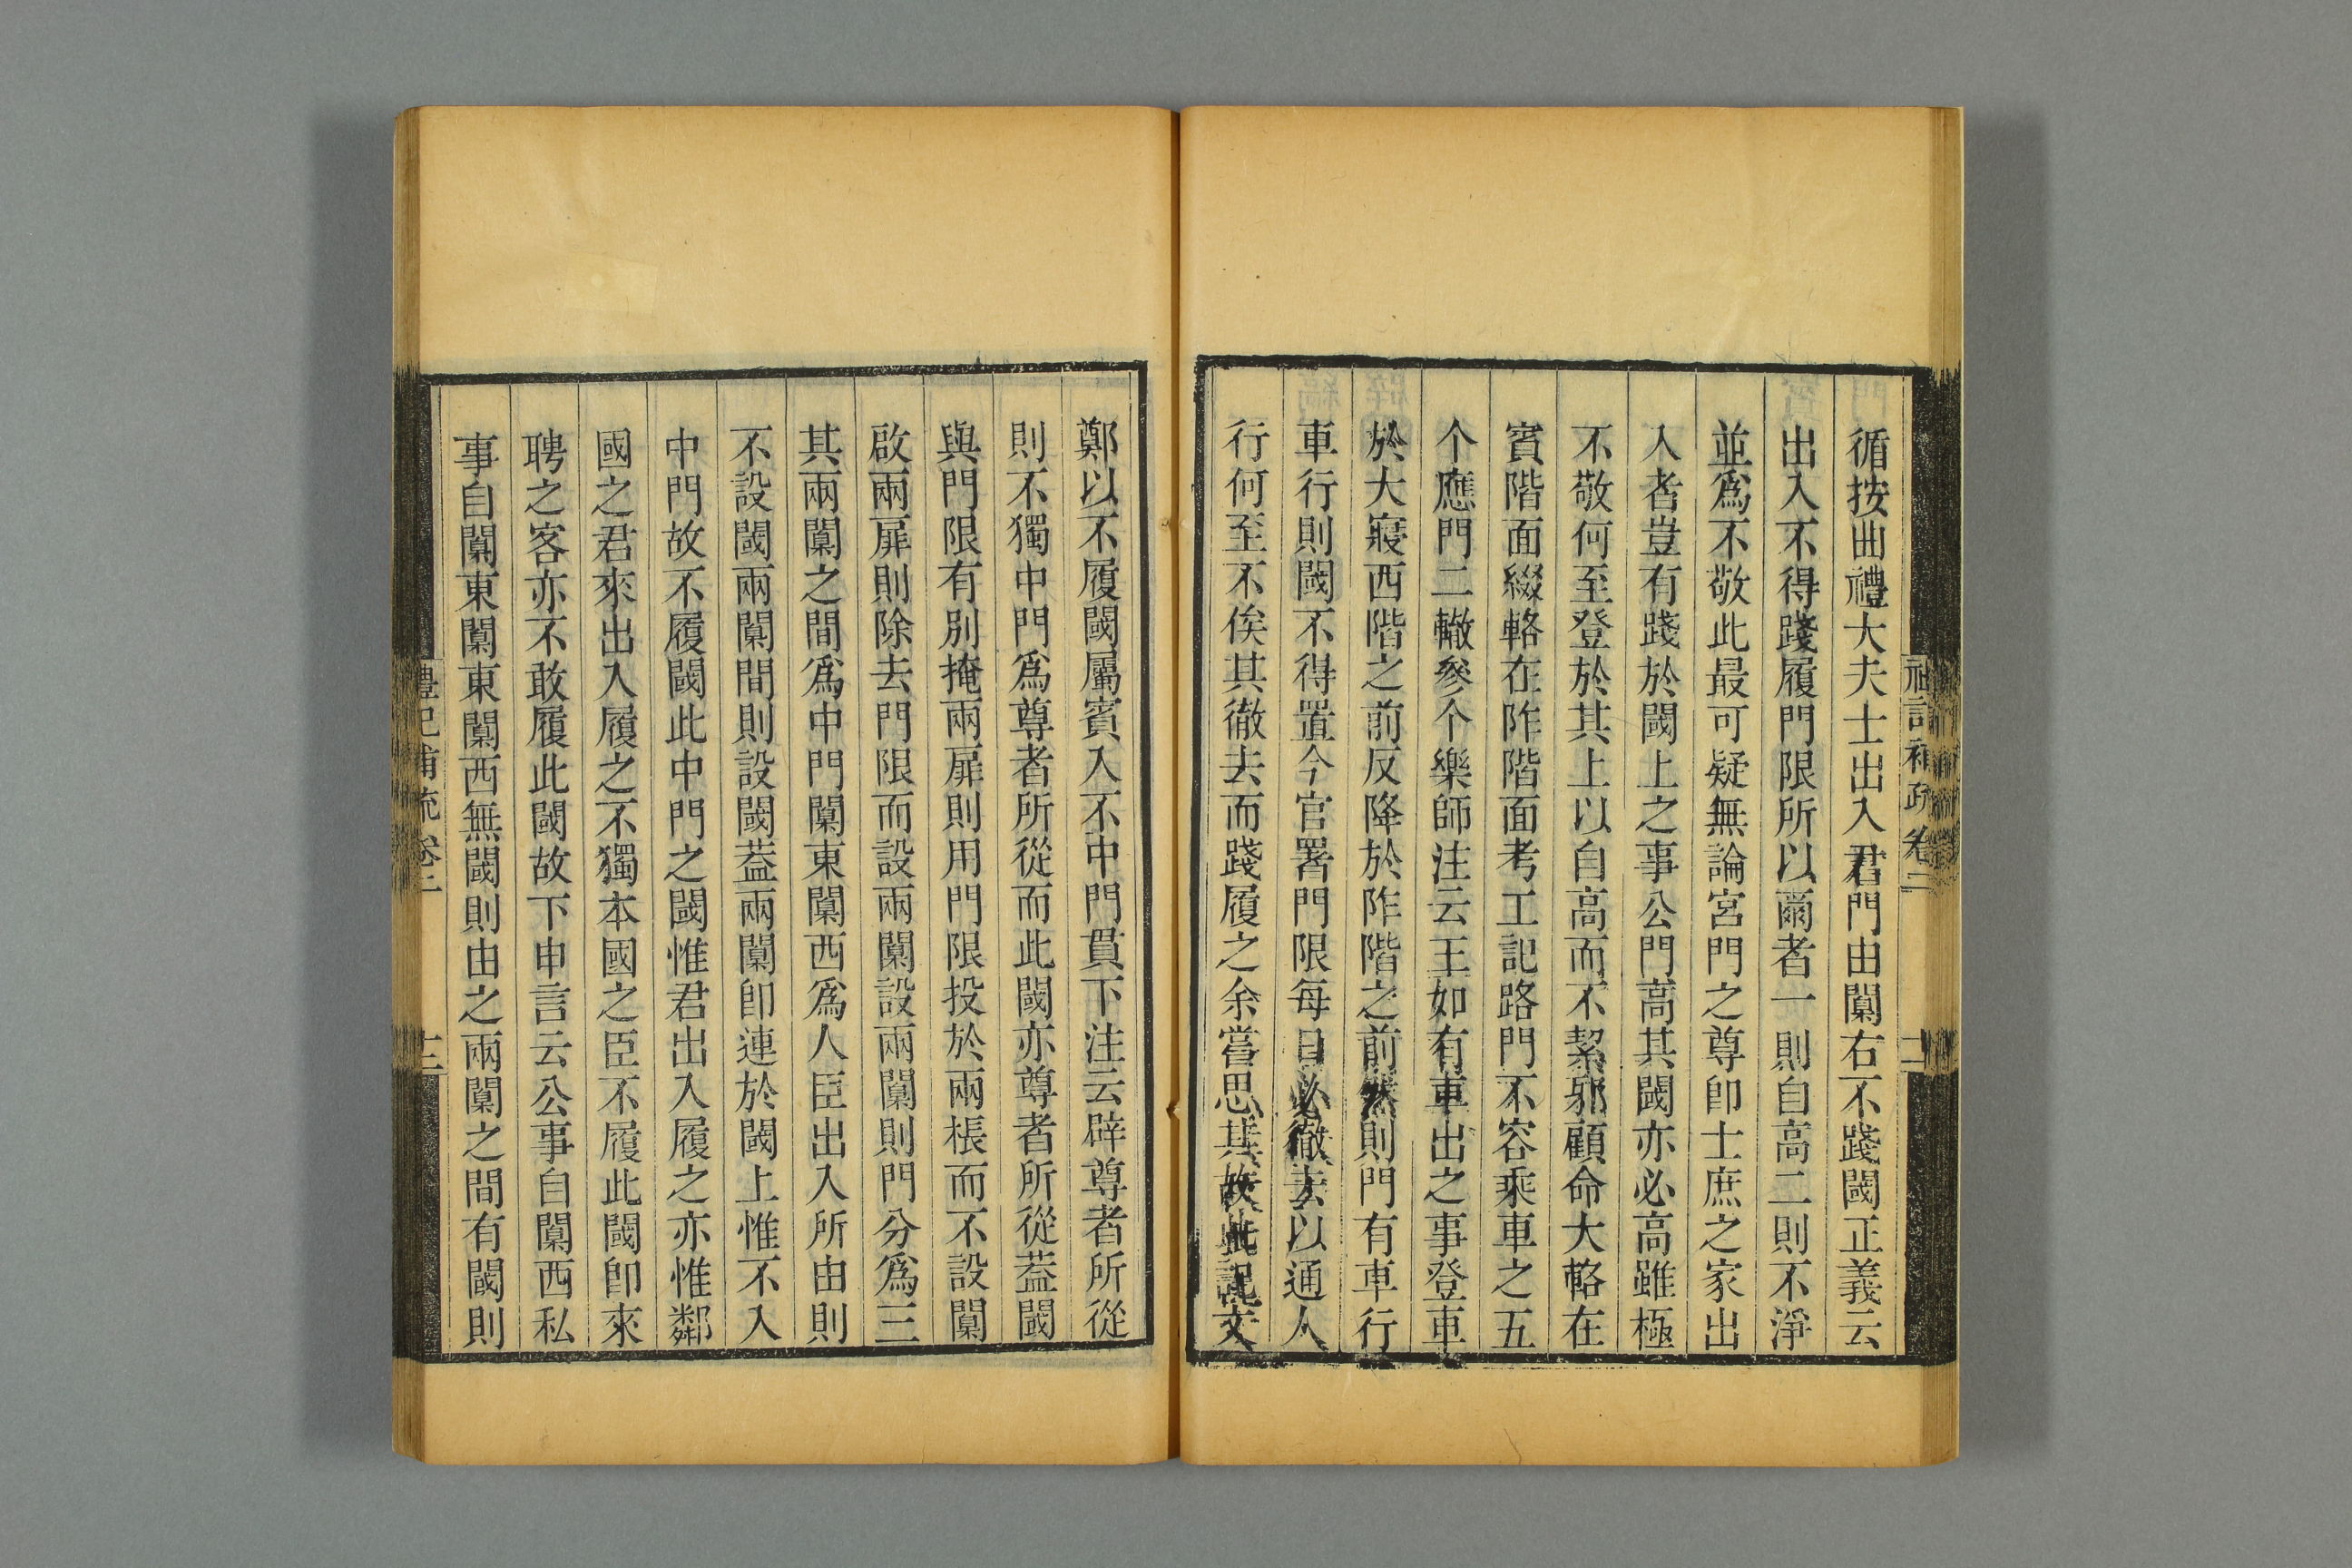 循按曲禮大夫士出入君門由闑右不踐閾正義云
出入不得踐履門限所以爾者一則自高二則不淨
並爲不敬此最可疑無論宮門之尊卽士庶之家出
入者豈有踐於閾上之事公門高其閾亦必高雖極
不敬何至登於其上以自高而不絜邪顧命大輅在
賓階面綴輅在阼階面考工記路門不容乘車之五
个應門二轍參个樂師注云王如有車出之事登車
於大寢西階之前反降於阼階之前然則門有車行
車行則閾不得置今官署門限每日必徹去以通人
行何至不俟其徹去而踐履之余嘗思其故此記文
鄭以不履閾屬賓入不中門貫下注云辟尊者所從
則不獨中門爲尊者所從而此閾亦尊者所從葢閾
與門限有別掩兩扉則用門限投於兩棖而不設闑
啟兩扉則除去門限而設兩闑設兩闑則門分爲三
其兩闑之間爲中門闑東闑西爲人臣出入所由則
不設閾兩闑間則設閾葢兩闑卽連於閾上惟不入
中門故不履閾此中門之閾惟君出入履之亦惟鄰
國之君來出入履之不獨本國之臣不履此閾卽來
聘之客亦不敢履此閾故下申言云公事自闑西私
事自闑東闑東闑西無閾則由之兩闑之間有閾則
禮記補疏 卷二